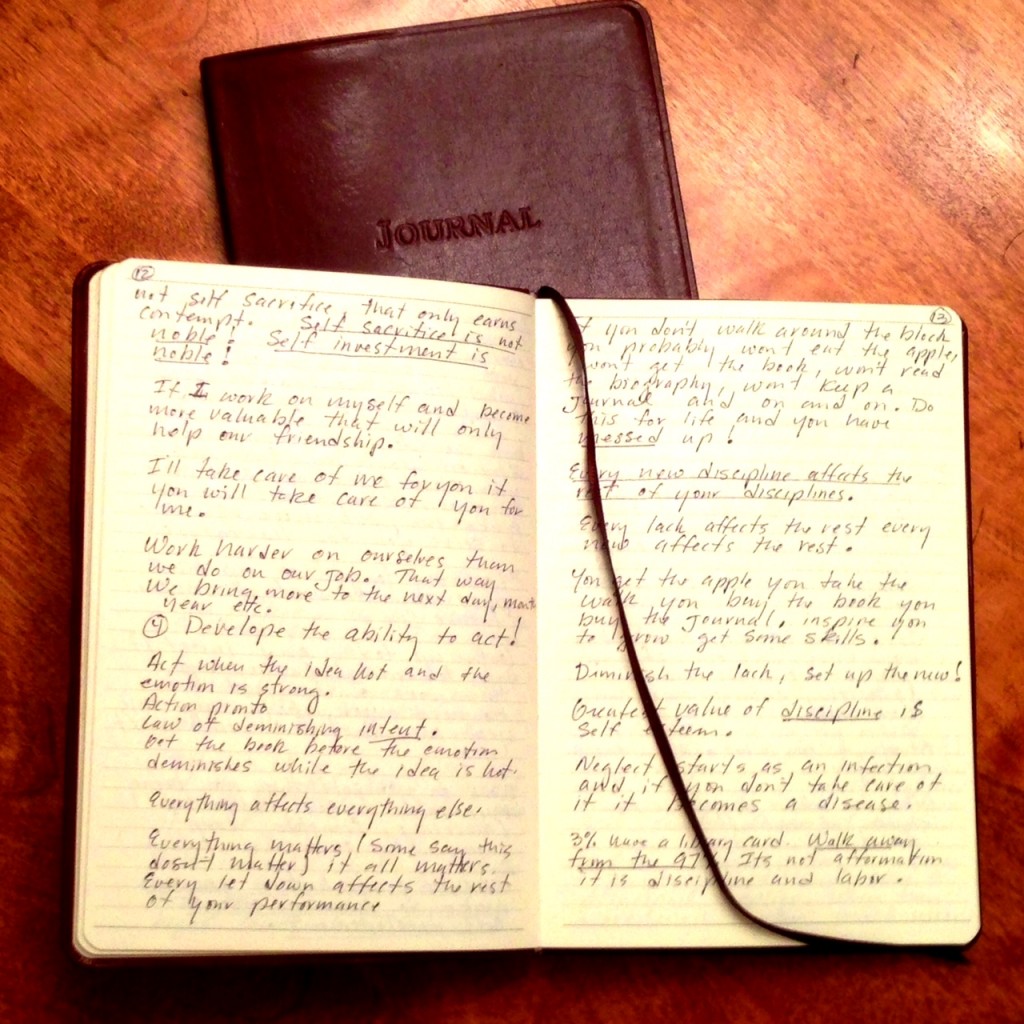 JOURNAL
12
not self sacrifice, that only earns
contempt. Self sacrifice is not
noble! Self investment is
noble!
If I work on myself and become
more valuable that will only
help our friendship.
I'll take care of me for you if
you will take care of you for
me.
Work harder on ourselves than
we do on our job. That way
we bring more to the next day, month
year etc.
④ Develope the ability to act!
Act when the idea hot and the
emotion is strong.
Action pronto
Law of deminishing intent.
Get the book before the emotion
deminishes while the idea is hot.
Everything affects everything else.
Everything matters (Some say this
doesn't matter) it all matters.
Every let down affects the rest
of your performance
13
If you don't walk around the block
you probably won't eat the apple,
won't get the book, won't read
the biography, won't keep a
Journal and on and on. Do
this for life and you have
messed up!
Every new discipline affects the
rest of your disciplines.
Every lack affects the rest every
new affects the rest.
You get the apple you take the
walk you buy the book you
buy the Journal, inspire you
to grow get some skills.
Diminish the lack, set up the new!
Greatest value of discipline is
Self esteem.
Neglect starts as an infection
and if you don't take care of
it it becomes a disease.
3% have a library card. Walk away
from the 97% Its not afformation
it is discipline and labor.